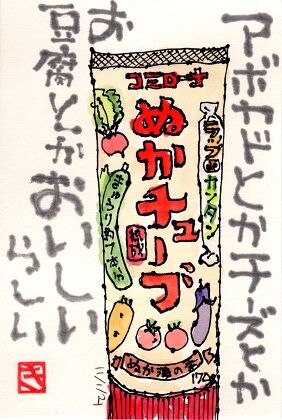 アボカドとかチーズとか
お豆腐とか おいしい
らしい
コミローナ
ぬかチューブ
熟成
ラップdeカンタン
きゅうり約7本分
ぬか漬の素